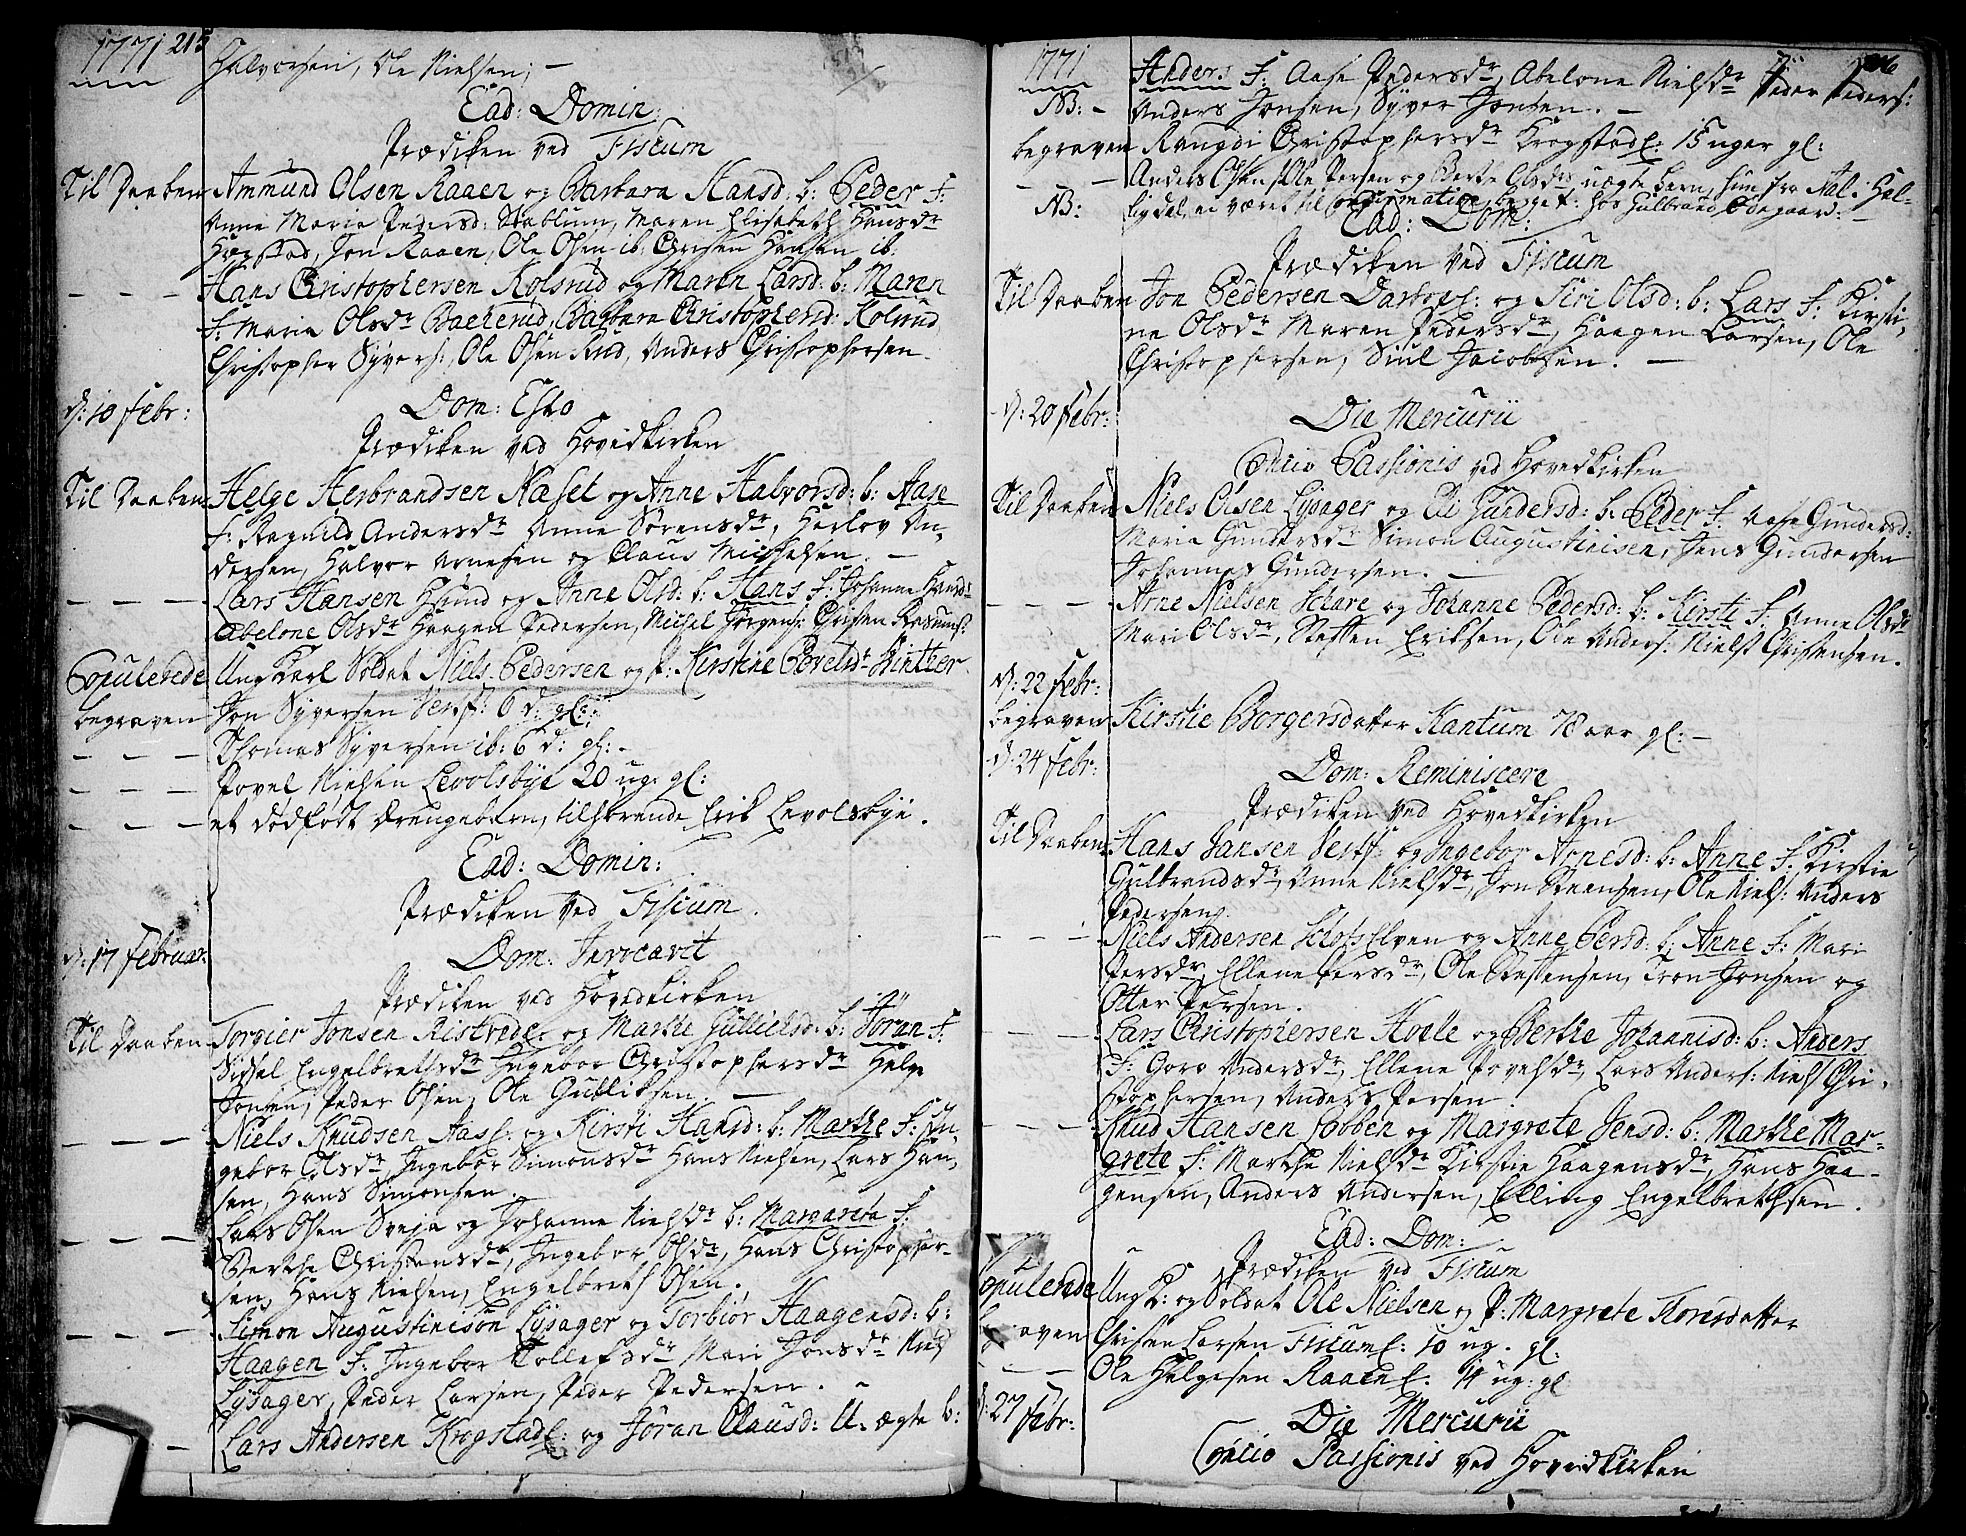 1771 215
Halvorsen, Ole Nielsen; –
Ead: Domin:
Prædiken ved Fiscum
Til Daaben Ammund Olsen Raaen og Barbara Hansd: b: Peder F:
Anne Maria Pedersd: Stablum, Maren Elisabeth Hansdr
Hægstad, Jon Raaen, Ole Olsen ib: Christen Hansen ib:
– – – Hans Christophersen Kolsrud og Maren Larsd: b: Maren
F: Maria Olsdr Bacherud, Barbara Christophersd: Kolsrud
Christopher Syvers:, Ole Olsen Rud, Anders Christophersen.
D: 10 Febr: Dom: Esto
Prædiken ved Hovedkirken
Til Daaben Helge Herbrandsen Næset og Anne Halvorsd: b: Aase
F: Ragnild Andersdr Anne Sørensdr, Herlov An-
dersen, Halvor Arnesen og Claus Michelsen. –
– – – Lars Hansen Hsund og Anne Olsd: b: Hans F: Johanne Hansdr
Abelone Olsdr Haagen Pedersen, Michel Jørgens: Christen Rasmus:
Copulerede Ung Karl Soldat Niels Pedersen og P: Kirstine Povelsdr
begraven Jon Syversen 6 d: gl:
– – – Thomas Syversen ib: 6 d: gl: –
– – – Povel Nielsen Levolsbye 20 ug: gl:
– – – et dødfødt drengebarn, tilhørende Erik Levolsbye.
Ead: Domin:
Prædiken ved Fiscum.
D: 17 Februar: Dom: Invocavit
Prædiken ved Hovedkirken
Til Daaben Torgier Jonsen Ristvede: og Marthe Gullichsd: b: Jöran F:
Sidsel Engelbretsdr Ingebor Christophersdr Helge
Jonsen, Peder Olsen, Ole Gulliksen. –
– – – Niels Knudsen Aas: og Kirsti Hansd: b: Marthe F: In-
gebor Olsdr, Ingebor Simonsdr Hans Nielsen, Lars Han-
sen, Hans Simonsen.
– – – Lars Olsen Sveja og Johanne Nielsdr b: Margareta F:
Berthe Christensdr, Ingebor Olsdr, Hans Christopher-
sen, Hans Nielsen, Engelbret Olsen.
– – – Simon Augustinisøn Lysager og Torbiør Haagensd: b:
Haagen F: Ingebor Tollefsdr Mari Jonsdr Niels
Lysager, Peder Larsen, Peder Pedersen. –
– Lars Andersen Krogstad: og Jöran Clausd: U-ægte b:
1771 216
Anders F: Aase Pedersdr, Abelone Nielsdr Peder Peders:
NB: – Anders Jonsen, Syver Jonsen. –
begraven Rangdi Christophersdr Krogstad: 15 uger gl:
– – Anders Ole Persen og Berte Olsdrs uægte barn, hun fra Aal i Hal-
NB: ligdal, ei været til confirmation, begge t: hos Gulbrand Ødegaard: –
Ead: Dom:
Prædiken ved Fiscum
Til Daaben Jon Pedersen Darbo: og Siri Olsd: b: Lars F: Kirsti-
ne Olsdr Maren Pedersdr, Haagen Larsen, Ole
Christophersen, Siul Jacobsen. –
D: 20 Febr: Die Mercurii
Concio Passionis ved Hovedkirken
Til Daaben Niels Olsen Lysager og Eli Gundersd: b: Peder F: Aase Gundersd:
Maria Gundersdr Simon Augustinisen, Jens Gundersen
Johannes Gundersen. –
– – – Arne Nielsen Schare og Johanne Pedersd: b: Kirsti F: Anne Olsdr
Mari Olsdr, Steffen Eriksen, Ole Anders: Niels Christensen.
D: 22 Febr:
begraven Kirstie Borgersdatter Kantum 78 aar gl: –
D: 24 Febr:
Dom: Reminiscere
Prædiken ved Hovedkirken
Til Daaben Hans Jansen og Ingebor Arnesd: b: Anne F: Kirstie
Gulbrandsdr, Anne Nielsdr, Jon Steensen, Ole Niels: Anders
Pedersen.
– – – Niels Andersen Schotselven og Anne Persd: b: Anne F: Mari
Persdr, Ellene Persdr, Ole Steffensen, Tron Jonsen og
Otter Persen.
– – Lars Christophersen Hvele og Berthe Johannisd: b: Anders
F: Goro Andersdr, Ellene Povelsdr, Lars Anders: Niels Chri-
stophersen, Anders Persen.
– – – Knud Hansen Løbben og Margrete Jensd: b: Marthe Mar-
grete F: Marthe Nielsdr Kirstie Haagensdr, Hans Haa-
gensen, Anders Andersen, Elling Engelbrethsen.
Ead: Dom:
Prædiken ved Fiscum
Copulerede Ung K: og Soldat Ole Nielsen og P: Margrete Toresdatter
Christen Larsen Fiscum: 10 ug. gl:
– – Ole Helgesen Raaen: 14 ug: gl:
D: 27 Febr: Die Mercurii
Concio Passionis ved Hovedkirken